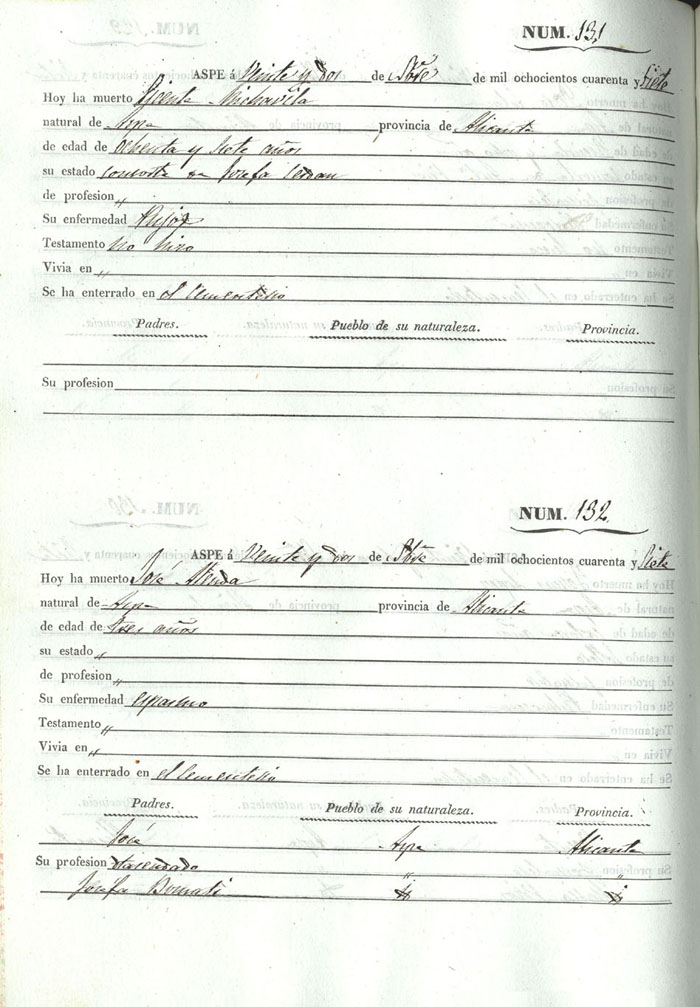 NUM. 131
ASPE á Veinte y dos de Sbre de mil ochocientos cuarenta y Siete
Hoy ha muerto Vicente
natural de Aspe provincia de Alicante
de edad de ochenta y Siete años
su estado consorte de Josefa
de profesion "
Su enfermedad
Testamento No hizo
Vivia en "
Se ha enterrado en el Cementerio
Padres. Pueblo de su naturaleza. Provincia.
Su profesion
NUM. 132
ASPE á Veinte y dos de Sbre de mil ochocientos cuarenta y Siete
Hoy ha muerto José
natural de Aspe provincia de Alicante
de edad de tres años
su estado "
de profesion "
Su enfermedad espasmo
Testamento "
Vivia en "
Se ha enterrado en el Cementerio
Padres. Pueblo de su naturaleza. Provincia.
José Aspe Alicante
Su profesion Hacendado " "
Josefa